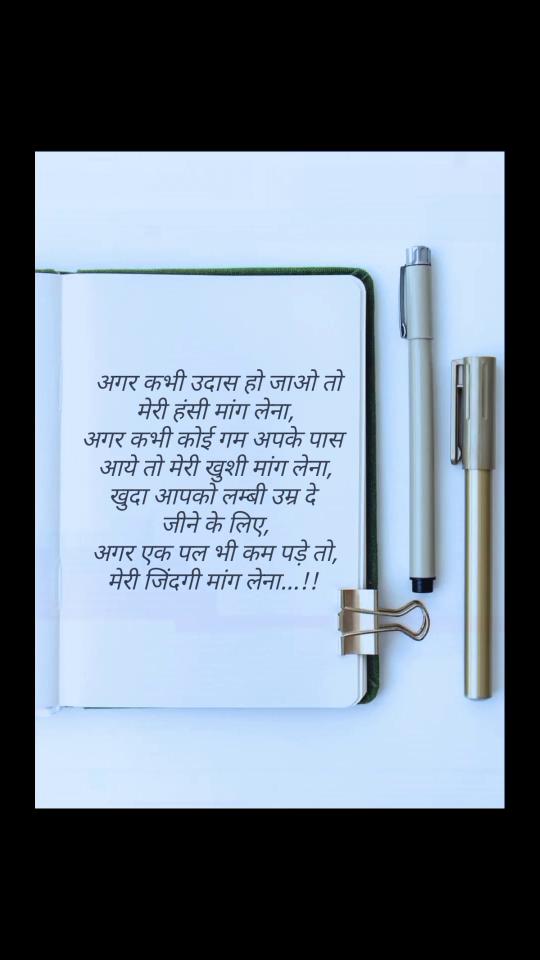 अगर कभी उदास हो जाओ तो
मेरी हंसी मांग लेना,
अगर कभी कोई गम अपके पास
आये तो मेरी खुशी मांग लेना,
खुदा आपको लम्बी उम्र दे
जीने के लिए,
अगर एक पल भी कम पड़े तो,
मेरी जिंदगी मांग लेना...!!